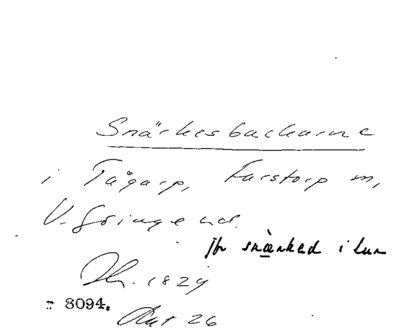 Snärkesbackarne
i Tågarp, Farstorp m,
V. Göinge hd.
jfr snærked i Lun
Sk. 1829
" 3094.
Akt 26